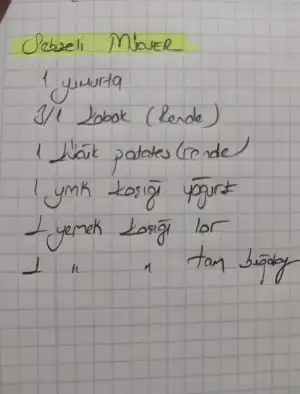 Sebzeli Mücver
1 yumurta
3/1 kabak (Rende)
1 küçük patates (rende)
1 ymk kaşığı yoğurt
1 yemek kaşığı lor
1 " " tam buğday